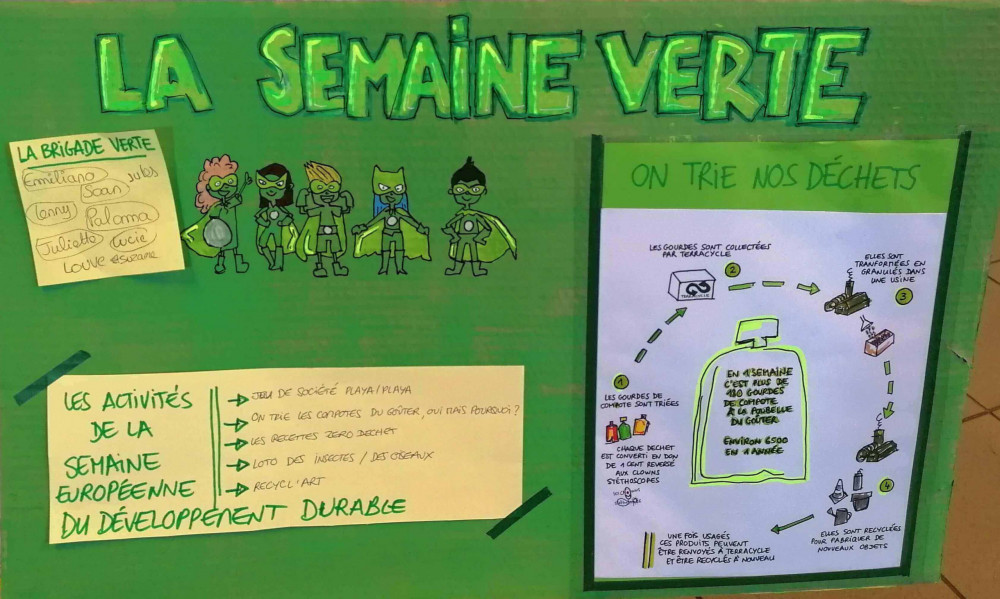 LA SEMAINE VERTE
LA BRIGADE VERTE
Emiliano Jules
Soan
Lenny Paloma
Juliette Lucie
Louve Suzane
LES ACTIVITÉS
DE LA
SEMAINE
EUROPÉENNE
DU DÉVELOPPEMENT DURABLE
JEU DE SOCIÉTÉ PLAYA/PLAYA
ON TRIE LES COMPOTES DU GOÛTER, OUI MAIS POURQUOI ?
LES RECETTES ZERO DECHET
LOTO DES INSECTES / DES OISEAUX
RECYCL'ART
ON TRIE NOS DÉCHETS
1
LES GOURDES DE
COMPOTE SONT TRIÉES
CHAQUE DECHET
EST CONVERTI EN DON
DE 1 CENT REVERSÉ
AUX CLOWNS
STÉTHOSCOPES
LES GOURDES SONT COLLECTÉES
PAR TERRACYCLE
2
TERRACYCLE
ELLES SONT
TRANFORMÉES EN
GRANULÉS DANS
UNE USINE
3
EN 1 SEMAINE
C'EST PLUS DE
180 GOURDES
DE COMPOTE
À LA POUBELLE
DU GOÛTER
ENVIRON 6500
EN 1 ANNÉE
4
ELLES SONT RECYCLÉES
POUR FABRIQUER DE
NOUVEAUX OBJETS
UNE FOIS USAGÉS
CES PRODUITS PEUVENT
ÊTRE RENVOYÉS À TERRACYCLE
ET ÊTRE RECYCLÉS À NOUVEAU